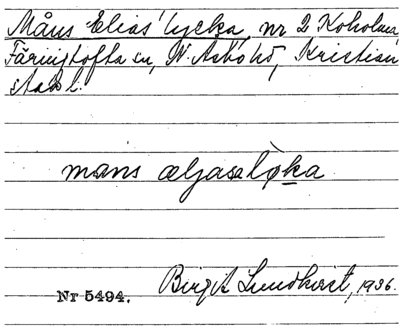 Måns Elias' lycka, nr 2 Koholma
Färingtofta sn, N. Asbo hd, Kristian
stads l.
måns æljasa løka
Birgit Lundkvist, 1936.
Nr 5494.